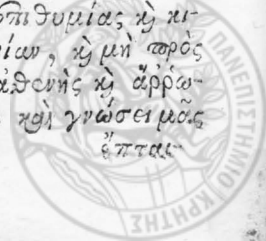 ἐπιθυμίας κὴ κι-
ίαν, κὴ μὴ πρὸς
ἀθενὴς κὴ ἄῤῥω-
καὶ γνώσει μᾶς
ἔπται-
ΠΑΝΕΠΙΣΤΗΜΙΟ ΚΡΗΤΗΣ